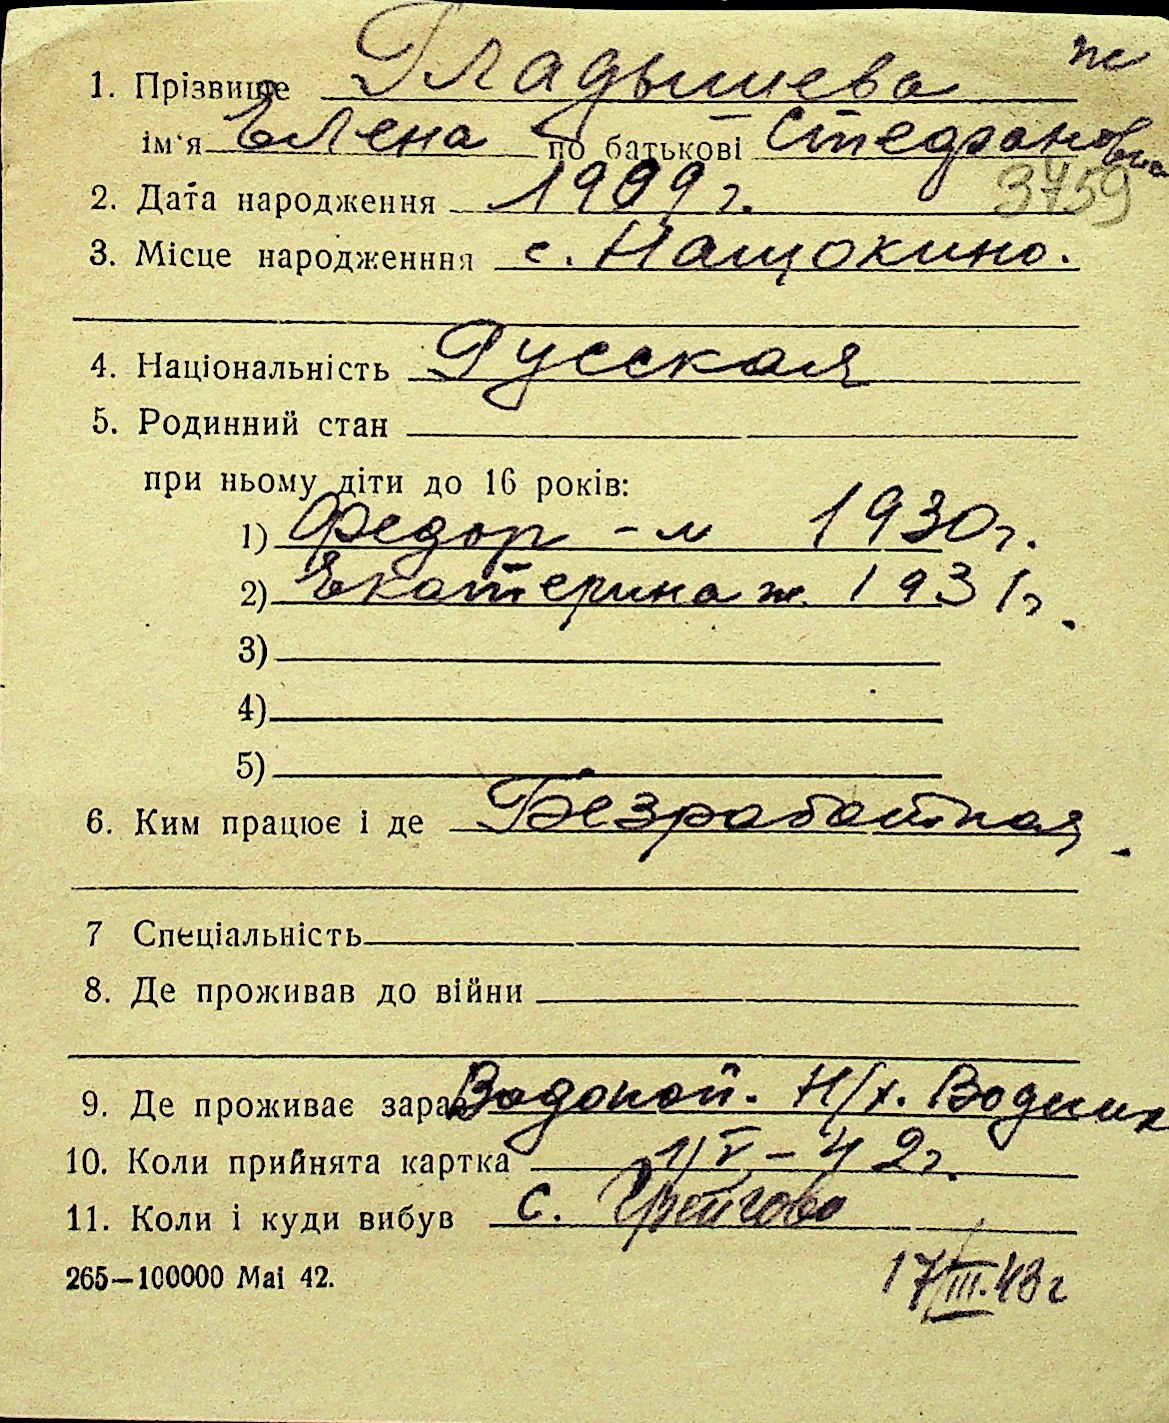 ж
1. Прізвище Гладышева
ім'я Елена по батькові Стефановна
3759
2. Дата народження 1909 г.
3. Місце народженння с. Нащокино.
4. Національність Русская
5. Родинний стан
при ньому діти до 16 років:
1) Федор - м 1930 г.
2) Екатерина ж. 1931 г.
3)
4)
5)
6. Ким працює і де Безработная.
7 Спеціальність
8. Де проживав до війни
9. Де проживає зараз Водопой. Н/х. Водник
10. Коли прийнята картка 1/V - 42 г.
11. Коли і куди вибув с. Грейгово
265—100000 Mai 42.
17/III. 43 г